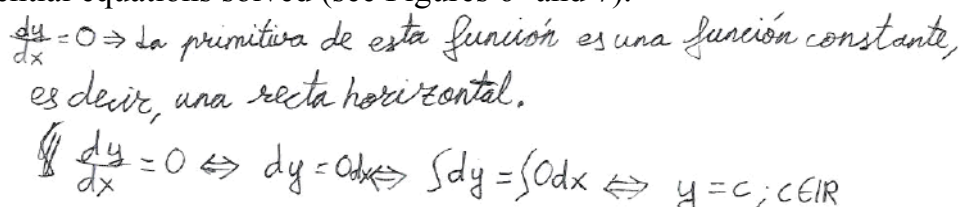 ential equations solved (see Figures 6 and 7).
dy/dx = 0 ⇒ La primitiva de esta función es una función constante,
es decir, una recta horizontal.
dy/dx = 0 ⇔ dy = 0dx ⇔ ∫dy = ∫0dx ⇔ y = c ; c ∈ IR